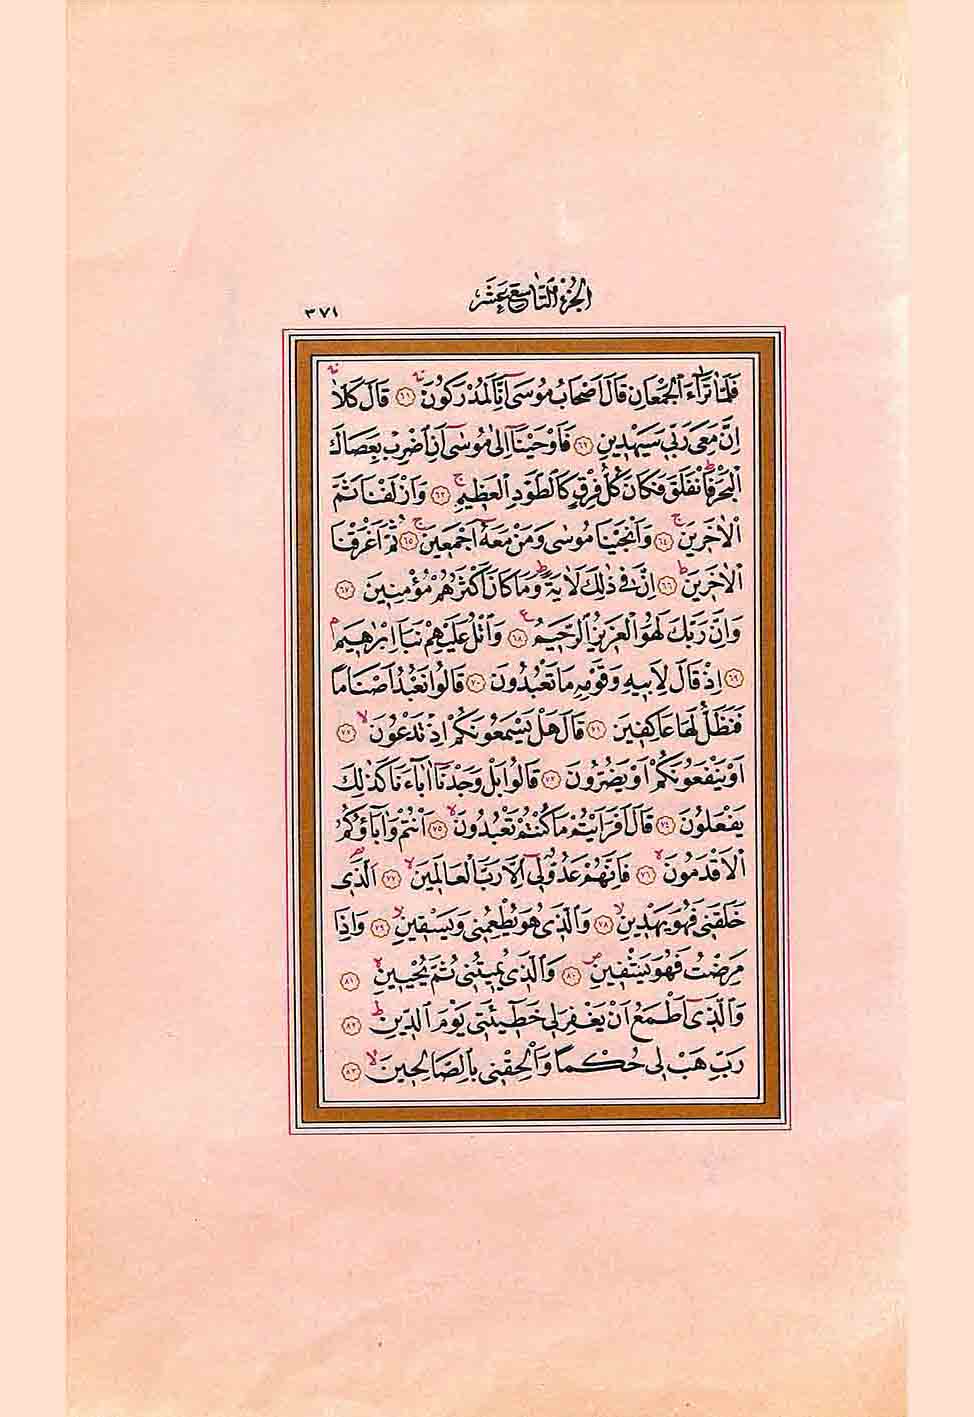 الجزء التاسع عشر
٣٧١
فَلَمَّا تَرَٓاءَ الْجَمْعَانِ قَالَ اَصْحَابُ مُوسٰٓى اِنَّا لَمُدْرَكُونَۚ ﴿٦١﴾ قَالَ كَلَّاۚ
اِنَّ مَعِىَ رَبّ۪ى سَيَهْد۪ينِ ﴿٦٢﴾ فَاَوْحَيْنَٓا اِلٰى مُوسٰٓى اَنِ اضْرِبْ بِعَصَاكَ
الْبَحْرَۜ فَانْفَلَقَ فَكَانَ كُلُّ فِرْقٍ كَالطَّوْدِ الْعَظ۪يمِۚ ﴿٦٣﴾ وَاَزْلَفْنَا ثَمَّ
الْاٰخَر۪ينَۚ ﴿٦٤﴾ وَاَنْجَيْنَا مُوسٰى وَمَنْ مَعَهُٓ اَجْمَع۪ينَۚ ﴿٦٥﴾ ثُمَّ اَغْرَقْنَا
الْاٰخَر۪ينَۜ ﴿٦٦﴾ اِنَّ ف۪ى ذٰلِكَ لَاٰيَةًۜ وَمَا كَانَ اَكْثَرُهُمْ مُؤْمِن۪ينَ ﴿٦٧﴾
وَاِنَّ رَبَّكَ لَهُوَ الْعَز۪يزُ الرَّح۪يمُ۟ ﴿٦٨﴾ وَاتْلُ عَلَيْهِمْ نَبَاَ اِبْرٰه۪يمَۢ
﴿٦٩﴾ اِذْ قَالَ لِاَب۪يهِ وَقَوْمِه۪ مَا تَعْبُدُونَ ﴿٧٠﴾ قَالُوا نَعْبُدُ اَصْنَامًا
فَنَظَلُّ لَهَا عَاكِف۪ينَ ﴿٧١﴾ قَالَ هَلْ يَسْمَعُونَكُمْ اِذْ تَدْعُونَۙ ﴿٧٢﴾
اَوْ يَنْفَعُونَكُمْ اَوْ يَضُرُّونَ ﴿٧٣﴾ قَالُوا بَلْ وَجَدْنَٓا اٰبَٓاءَنَا كَذٰلِكَ
يَفْعَلُونَ ﴿٧٤﴾ قَالَ اَفَرَاَيْتُمْ مَا كُنْتُمْ تَعْبُدُونَۙ ﴿٧٥﴾ اَنْتُمْ وَاٰبَٓاؤُكُمُ
الْاَقْدَمُونَۘ ﴿٧٦﴾ فَاِنَّهُمْ عَدُوٌّ ل۪ٓى اِلَّا رَبَّ الْعَالَم۪ينَۙ ﴿٧٧﴾ اَلَّذ۪ى
خَلَقَن۪ى فَهُوَ يَهْد۪ينِۙ ﴿٧٨﴾ وَالَّذ۪ى هُوَ يُطْعِمُن۪ى وَيَسْق۪ينِۙ ﴿٧٩﴾ وَاِذَا
مَرِضْتُ فَهُوَ يَشْف۪ينِۖ ﴿٨٠﴾ وَالَّذ۪ى يُم۪يتُن۪ى ثُمَّ يُحْي۪ينِۙ ﴿٨١﴾
وَالَّذ۪ٓى اَطْمَعُ اَنْ يَغْفِرَ ل۪ى خَط۪ٓيـَٔت۪ى يَوْمَ الدّ۪ينِۜ ﴿٨٢﴾
رَبِّ هَبْ ل۪ى حُكْمًا وَاَلْحِقْن۪ى بِالصَّالِح۪ينَۙ ﴿٨٣﴾